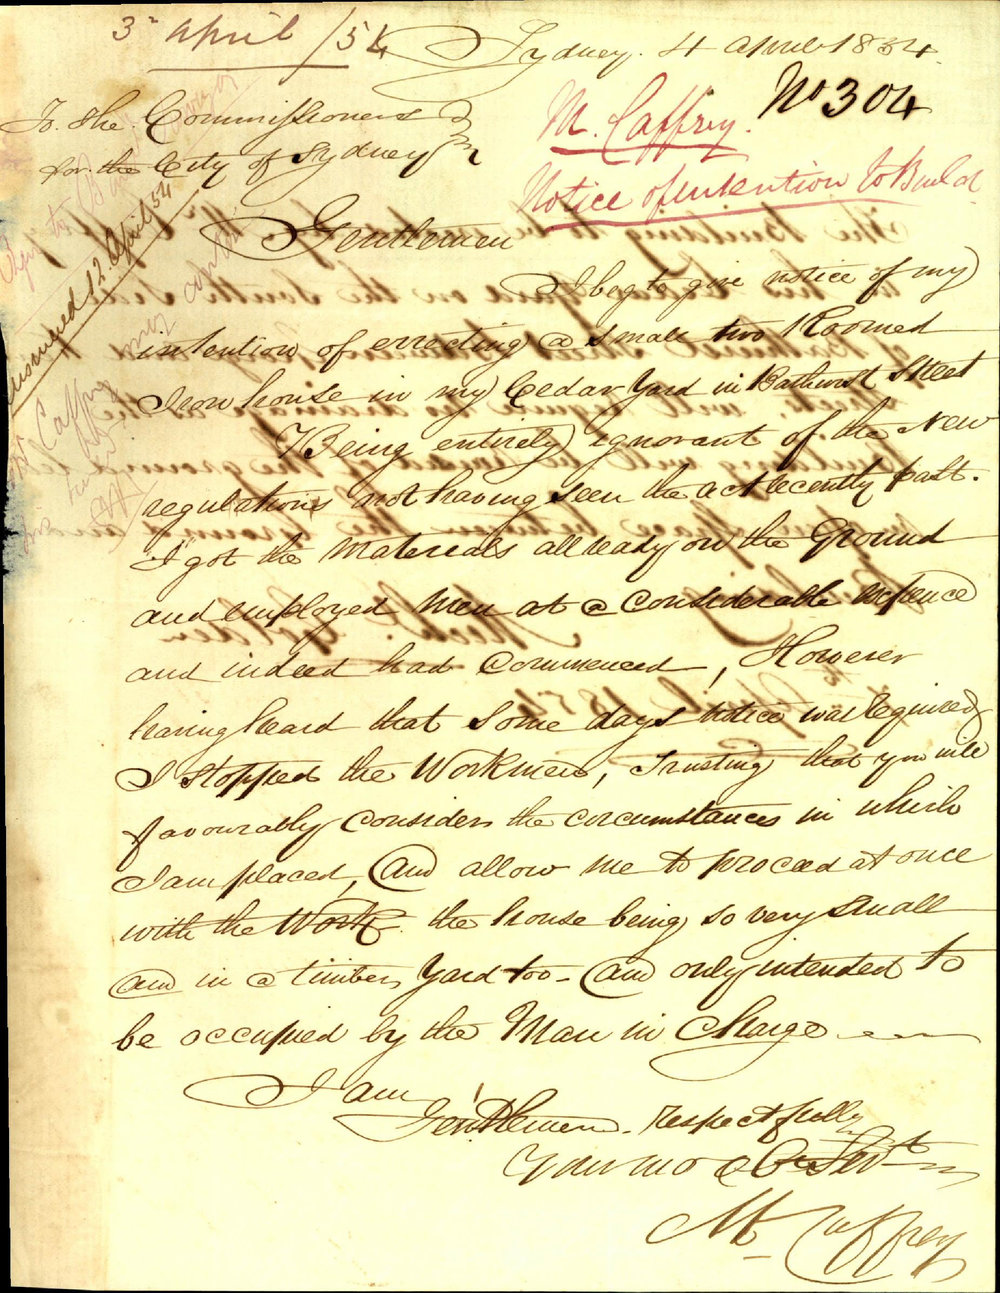 3d April /54
Sydney. 4 April 1854.
No 304
M. Caffrey.
Notice of intention to Build
To the Commissioners
for the City of Sydney
answered 12 April 54
Gentlemen
I beg to give notice of my
intention of errecting a small two Roomed
Iron house in my Cedar Yard in Bathurst Street
Being entirely ignorant of the New
regulations not having seen the act recently past.
I got the Materials allready on the Ground
and employed Men at a Considerable expence
and indeed had Commenced, However
having heard that some days notice was required
I stopped the Workmen, Trusting that you will
favourably consider the circumstances in which
I am placed, And allow me to proceed at once
with the Work. the house being so very small
and in a timber Yard too - And only intended to
be occupied by the Man in Charge
I am
Gentlemen. respectfully
Your mo Ob Svt
M. Caffrey